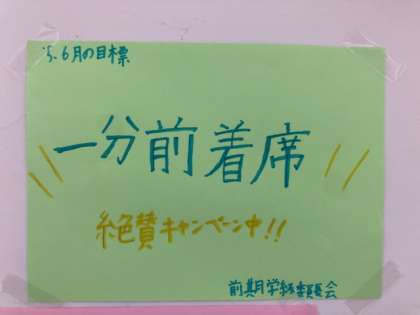 5、6月の目標
一分前着席
絶賛キャンペーン中!!
前期学級委員会